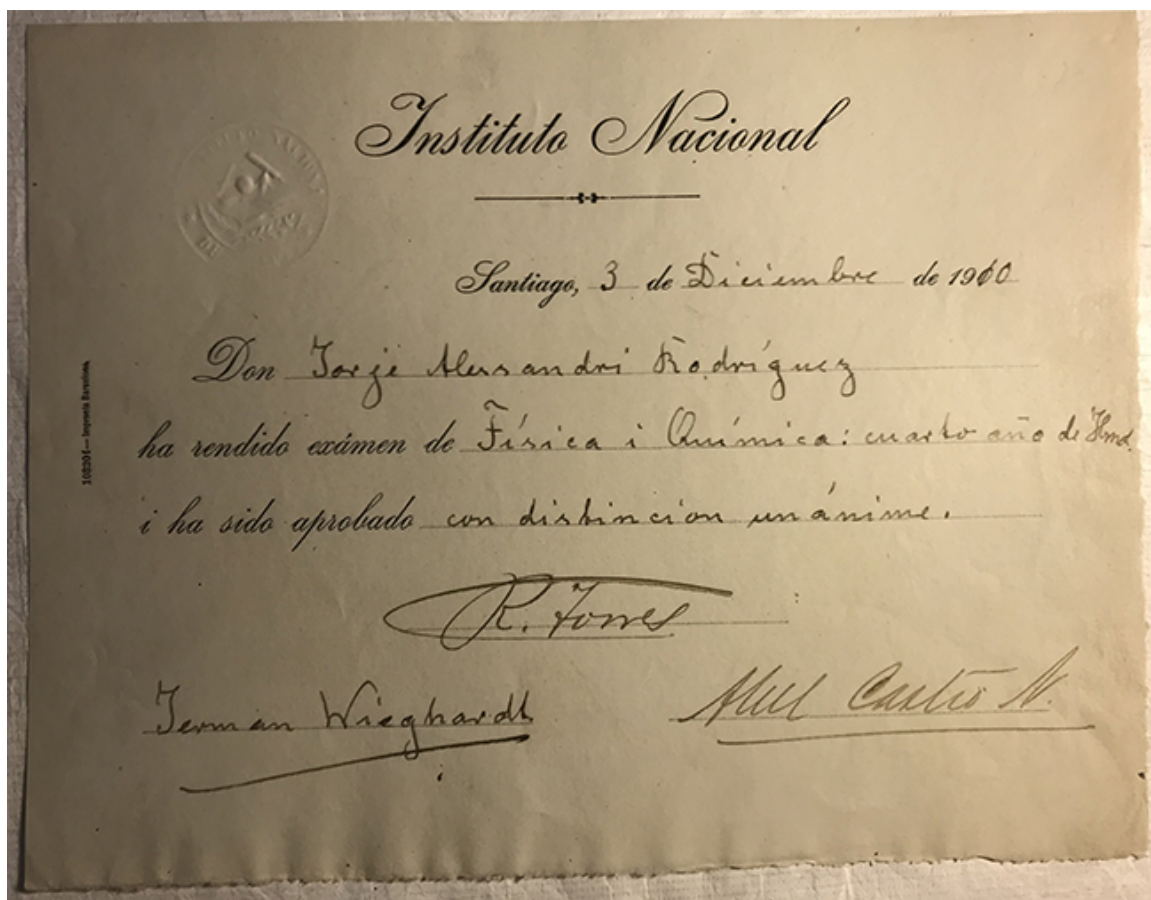 Instituto Nacional
Santiago, 3 de Diciembre de 1910
Don Jorje Alessandri Rodríguez
ha rendido exámen de Física i Química: cuarto año de Hmd.
i ha sido aprobado con distincion unánime.
R. Torres
Jerman Wieghardt
Abel Castro N.
108204—Imprenta Barcelona